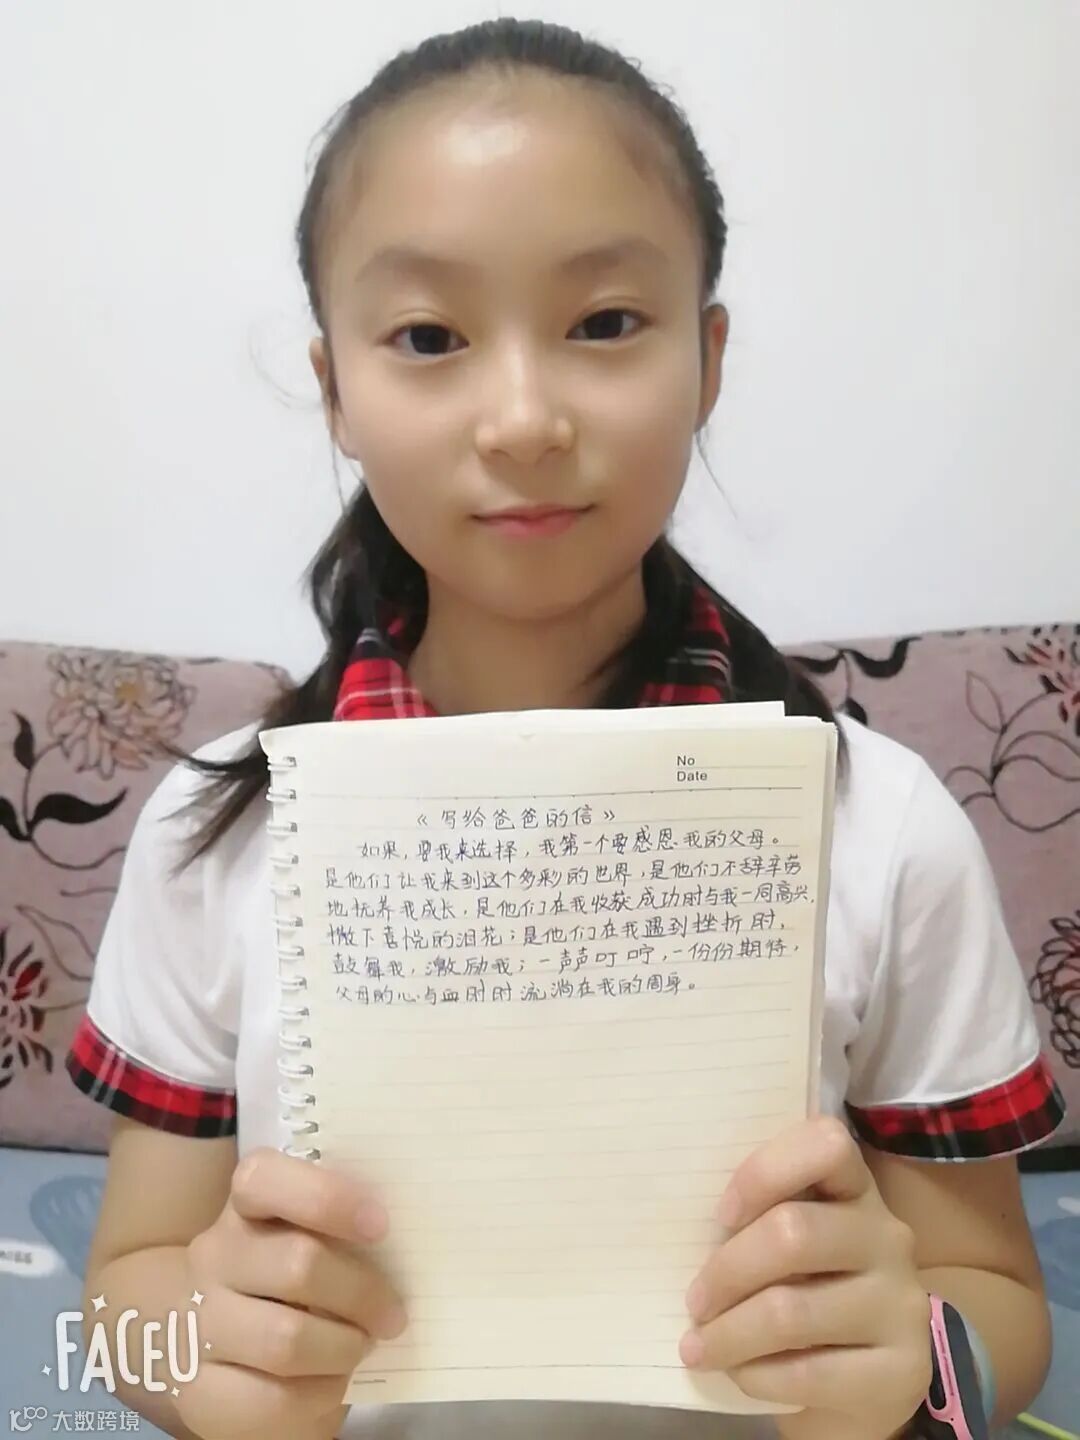 No
Date
《写给爸爸的信》
如果，要我来选择，我第一个要感恩我的父母。
是他们让我来到这个多彩的世界，是他们不辞辛劳
地抚养我成长，是他们在我收获成功时与我一同高兴，
撒下喜悦的泪花；是他们在我遇到挫折时，
鼓舞我，激励我；一声声叮咛，一份份期待，
父母的心与血时时流淌在我的周身。
FACEU
大数跨境